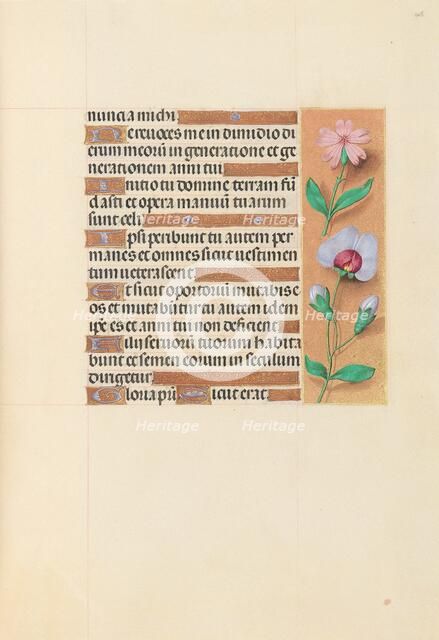 nuncia michi.
Ne revoces me in dimidio di
erum meorũ in generatione et ge
nerationem anni tui
Initio tu domine terram fũ
dasti et opera manuũ tuarum
sunt celi
Ipsi peribunt tu autem per
manes et omnes sicut vestimen
tum veterascent
Et sicut opertoriũ mutabis e
os et mutabũtur tu autem idem
ipe es et anni tui non deficient
Filii servorũ tuorum habita
bunt et semen eorum in seculum
dirigetur
Gloria pr̃i Sicut erat
Heritage Heritage
Heritage Heritage
Heritage Heritage